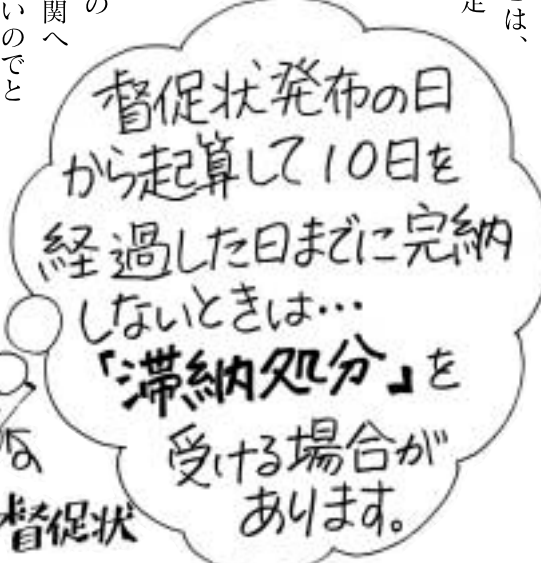 とは、
定
の
関へ
いのでと
督促状発布の日
から起算して10日を
経過した日までに完納
しないときは…
「滞納処分」を
受ける場合が
あります。
な
督促状